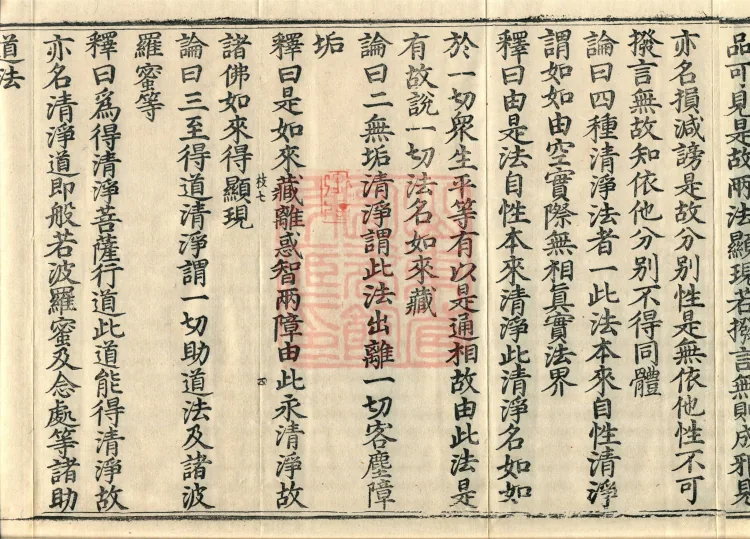 品可見是故兩法顯現若撥言無則成邪見
亦名損減謗是故分別性是無依他性不可
撥言無故知依他分別不得同體
論曰四種清淨法者一此法本來自性清淨
謂如如由空實際無相真實法界
釋曰由是法自性本來清淨此清淨名如如
於一切衆生平等有以是通相故由此法是
有故說一切法名如來藏
論曰二無垢清淨謂此法出離一切客塵障
垢
釋曰是如來藏離惑智兩障由此永清淨故
枝七
四
諸佛如來得顯現
論曰三至得道清淨謂一切助道法及諸波
羅蜜等
釋曰爲得清淨菩薩行道此道能得清淨故
亦名清淨道即般若波羅蜜及念處等諸助
道法